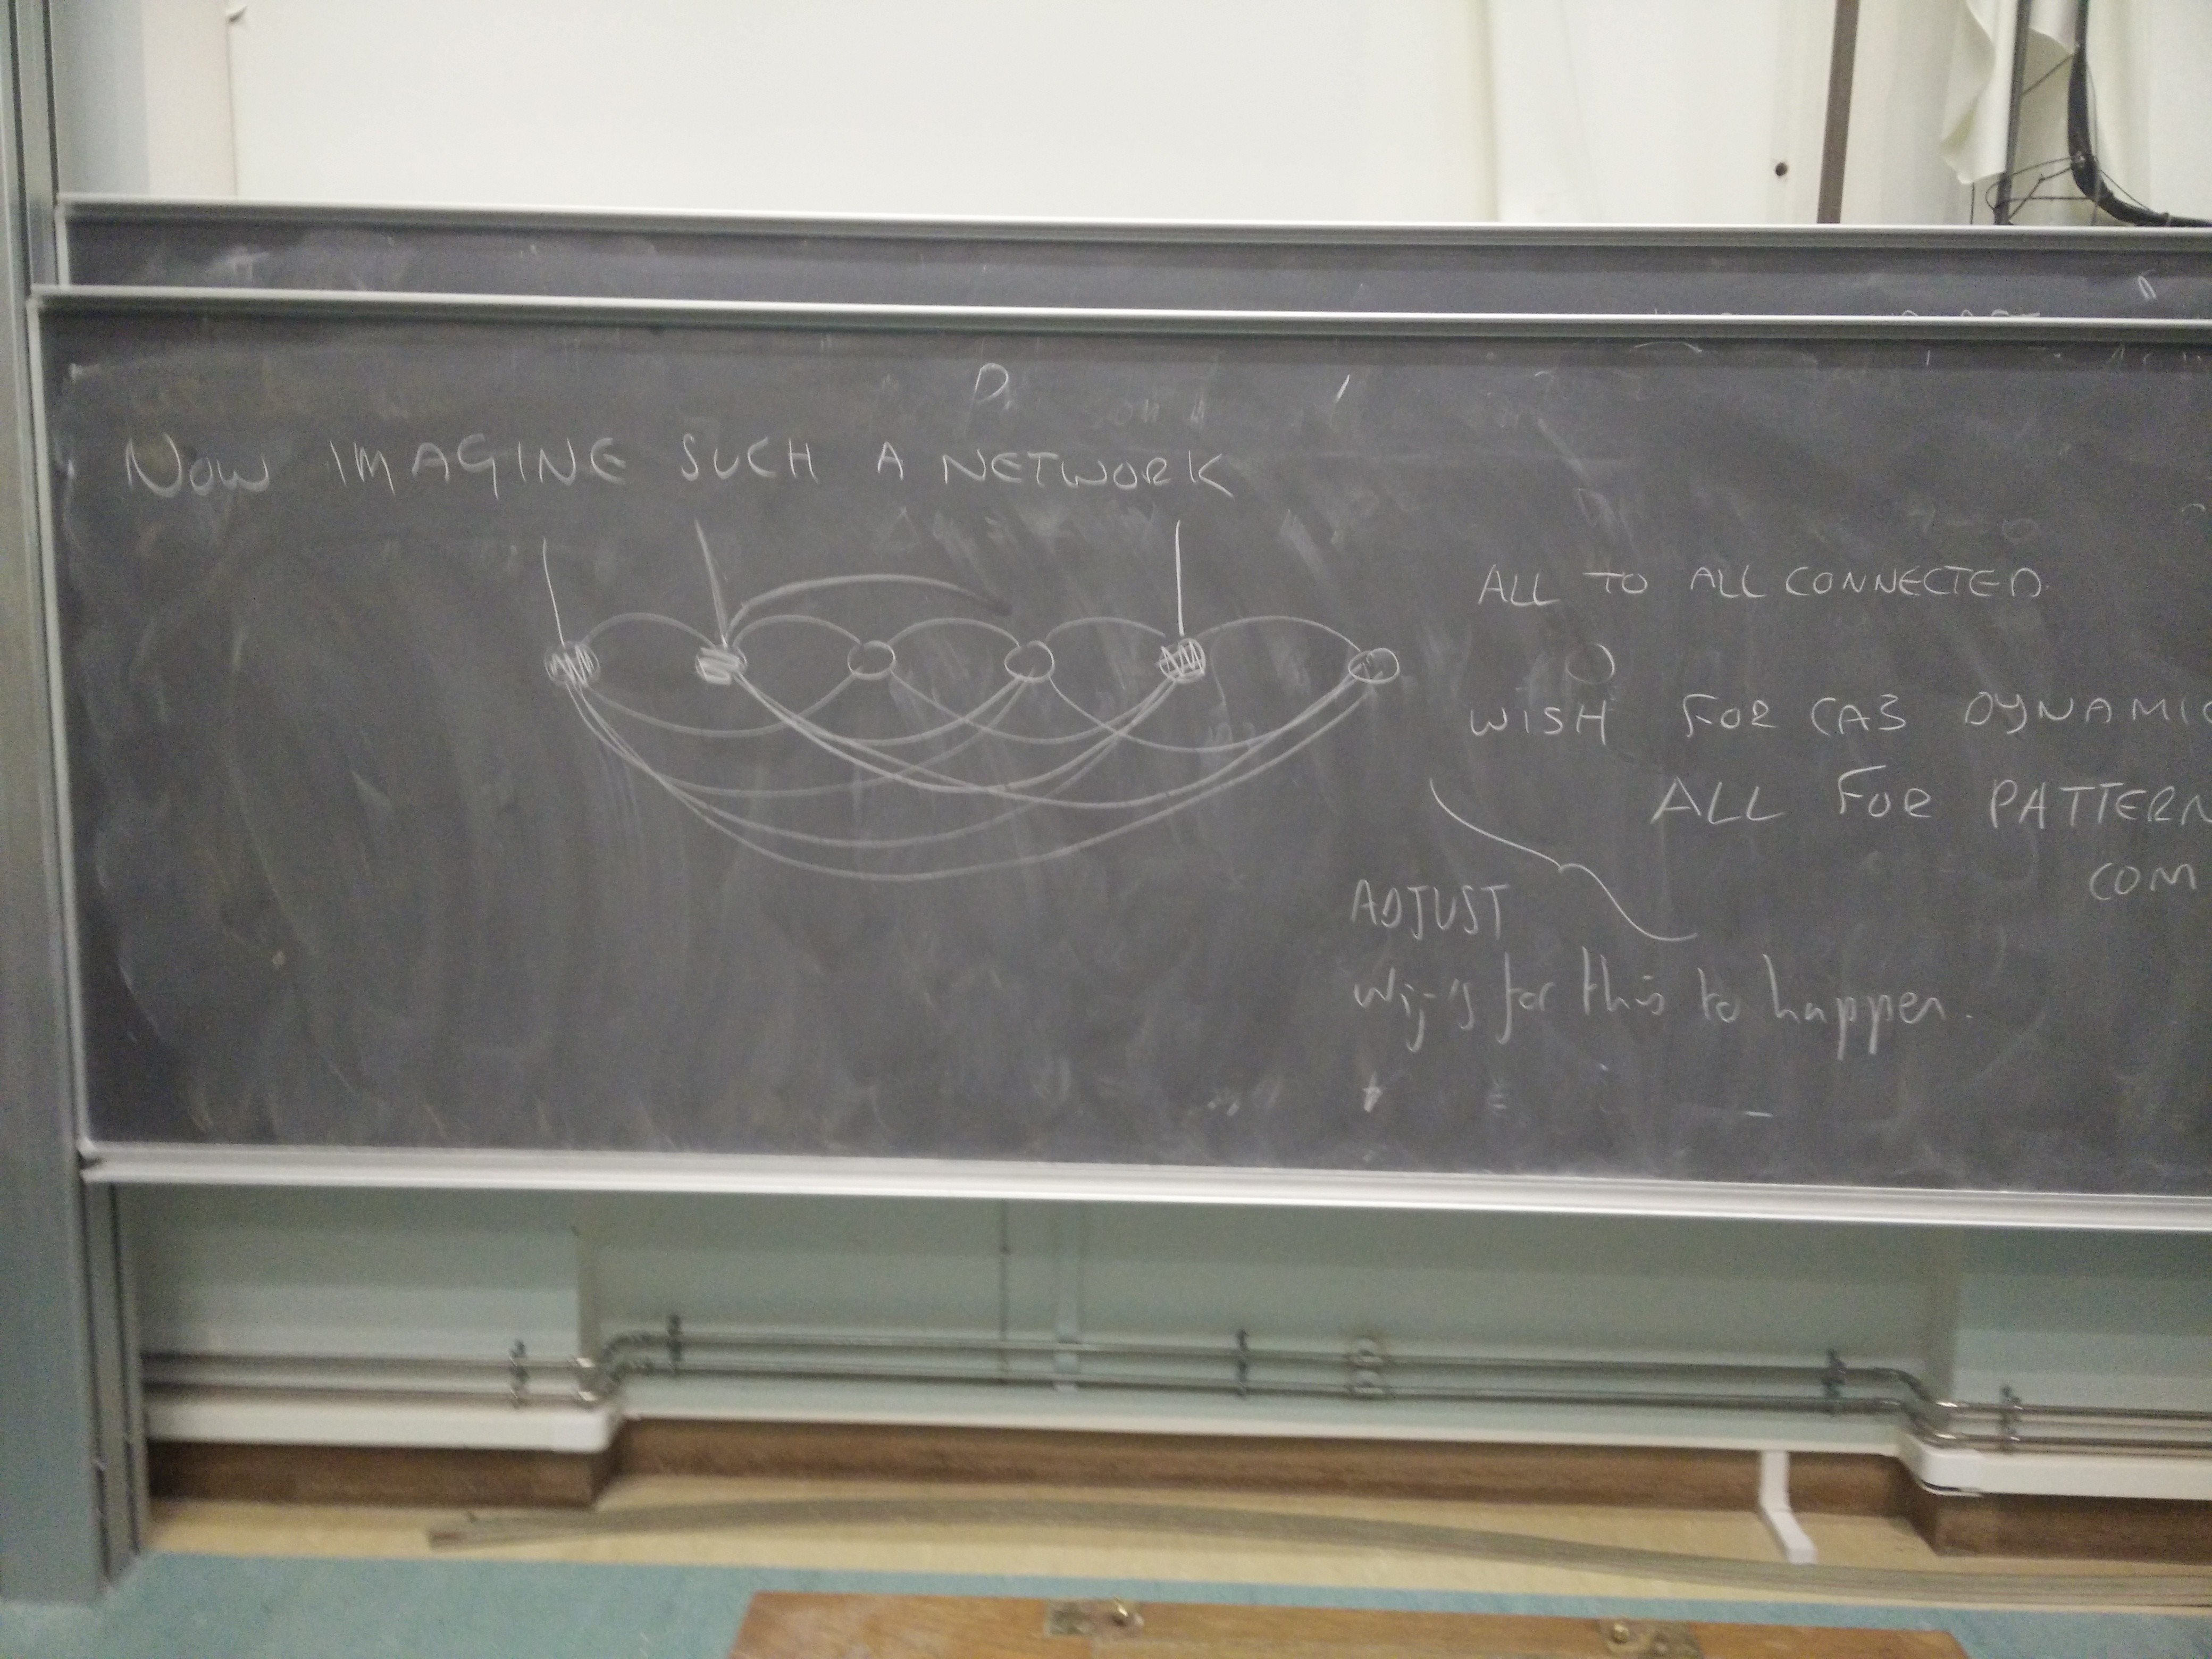 NOW IMAGINE SUCH A NETWORK
ALL TO ALL CONNECTED.
WISH FOR CA3 DYNAMIC
ALL FOR PATTERN
COM
ADJUST
Wij-s for this to happen.